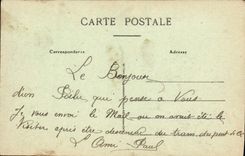 CARTE POSTALE
Correspondance
Adresse
Le Bonjour
d'un qui pense à Vous
Je vous envoi le Mail ou on avait été le
après être descendu du tram, du pont
L'Ami Paul